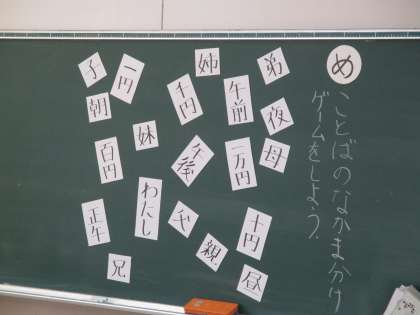 め
ことばのなかま分け
ゲームをしよう。
弟
姉
一円
子
千円
午前
夜
朝
妹
母
百円
午後
一万円
わたし
父
十円
正午
親
兄
昼